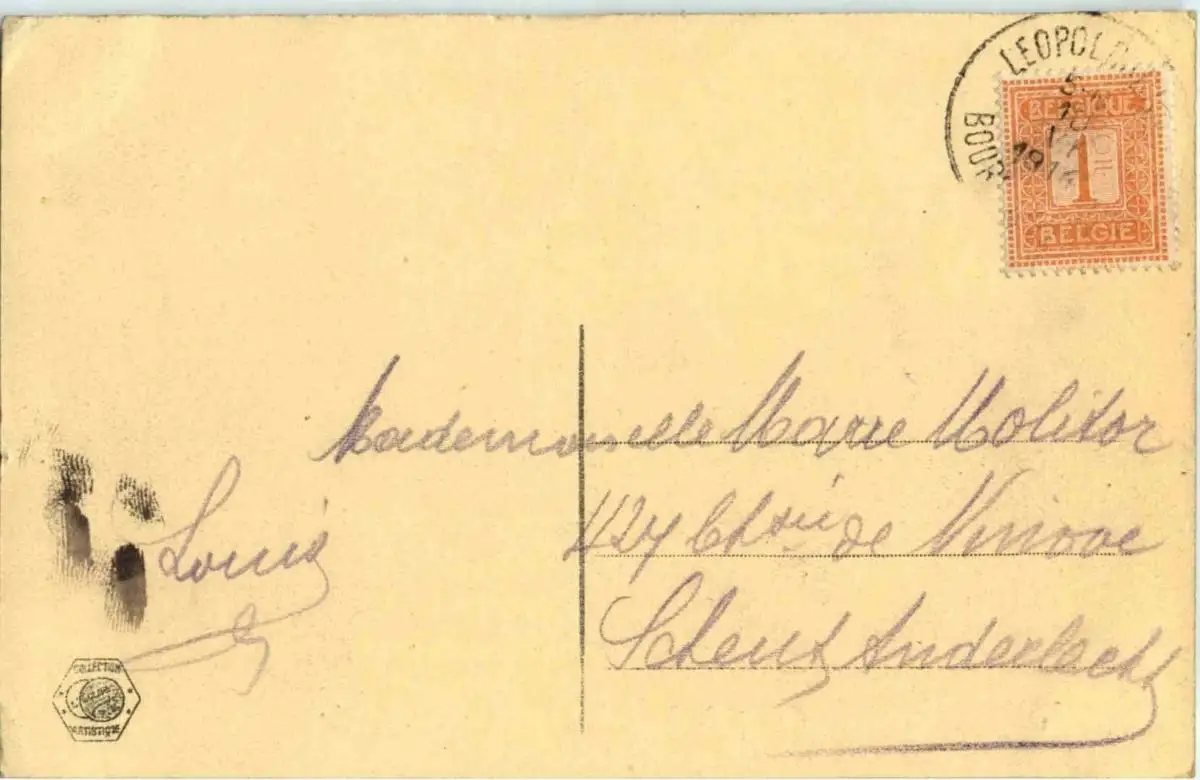 LEOPOLD
BOUR
5
18
VI
1914
BELGIQUE
1
BELGIE
Mademoiselle Marie Molitor
427 Chsée de Ninove
Scheut Anderlecht
Louis
COLLECTION
ARTISTIQUE